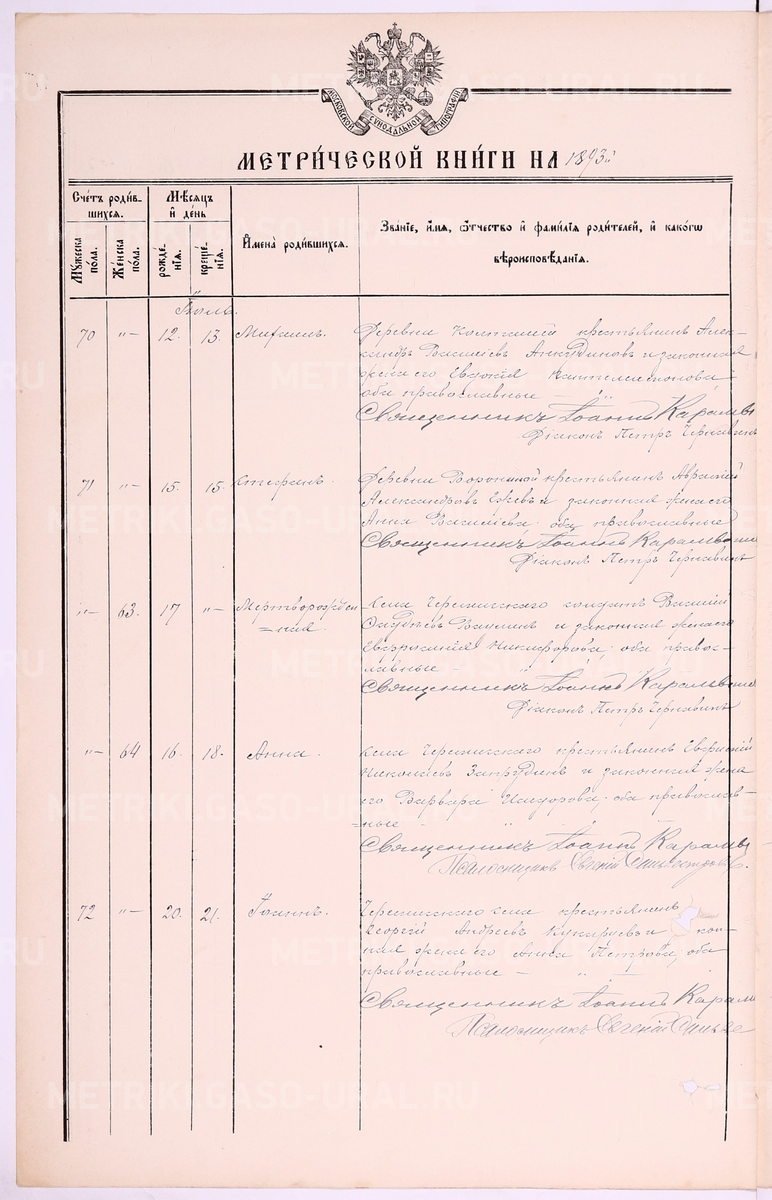 МОСКОВСКОЙ СѴНОДАЛЬНОЙ ТИПОГРАФІИ
МЕТРИ́ЧЕСКОЙ КНИ́ГИ НА 1893й
Сче́тъ роди́вшихся.
Му́жеска по́ла.
Же́нска по́ла.
Мѣ́сяцъ и҆ де́нь
рожде́нїя.
креще́нїя.
И҆мена̀ роди́вшихся.
Зва́нїе, и҆́мя, ѻ҆́тчество и҆ фами́лїя роди́телей, и҆ како́гѡ
вѣроисповѣ́данїя.
Іюль.
70 „— 12. 13. Михаилъ. Деревни Колташей крестьянинъ Алек-
сандръ Васильевъ и законная
жена его Евдокія Пантелеимонова,
оба православные —
Священникъ Іоаннъ
Діаконъ Петръ Чернавинъ
71 „— 15. 15. Стефанъ. Деревни Ворониной крестьянинъ Аврамій
Александровъ Ежевъ и законная жена его
Анна Васильева оба православные
Священникъ Іоаннъ
Діаконъ Петръ Чернавинъ
„— 63. 17 „— Мертворожден
=ная Села Черемисскаго солдатъ Василій
и законная жена его
Никифорова; оба право-
славные —
Священникъ Іоаннъ
Діаконъ Петръ Чернавинъ
„— 64 16. 18. Анна. Села Черемисскаго крестьянинъ
Николаевъ Запрудинъ и законная жена
его Варвара Исидорова. оба православ-
=ные
Священникъ Іоаннъ
Псаломщикъ Евгеній
72 „— 20. 21. Іоаннъ. Черемисскаго села крестьянинъ
Георгій Андреевъ Кукарцевъ и
ная жена его Анна Петрова, оба
православные —
Священникъ Іоаннъ
Псаломщикъ Евгеній
METRIKI.GASO-URAL.RU